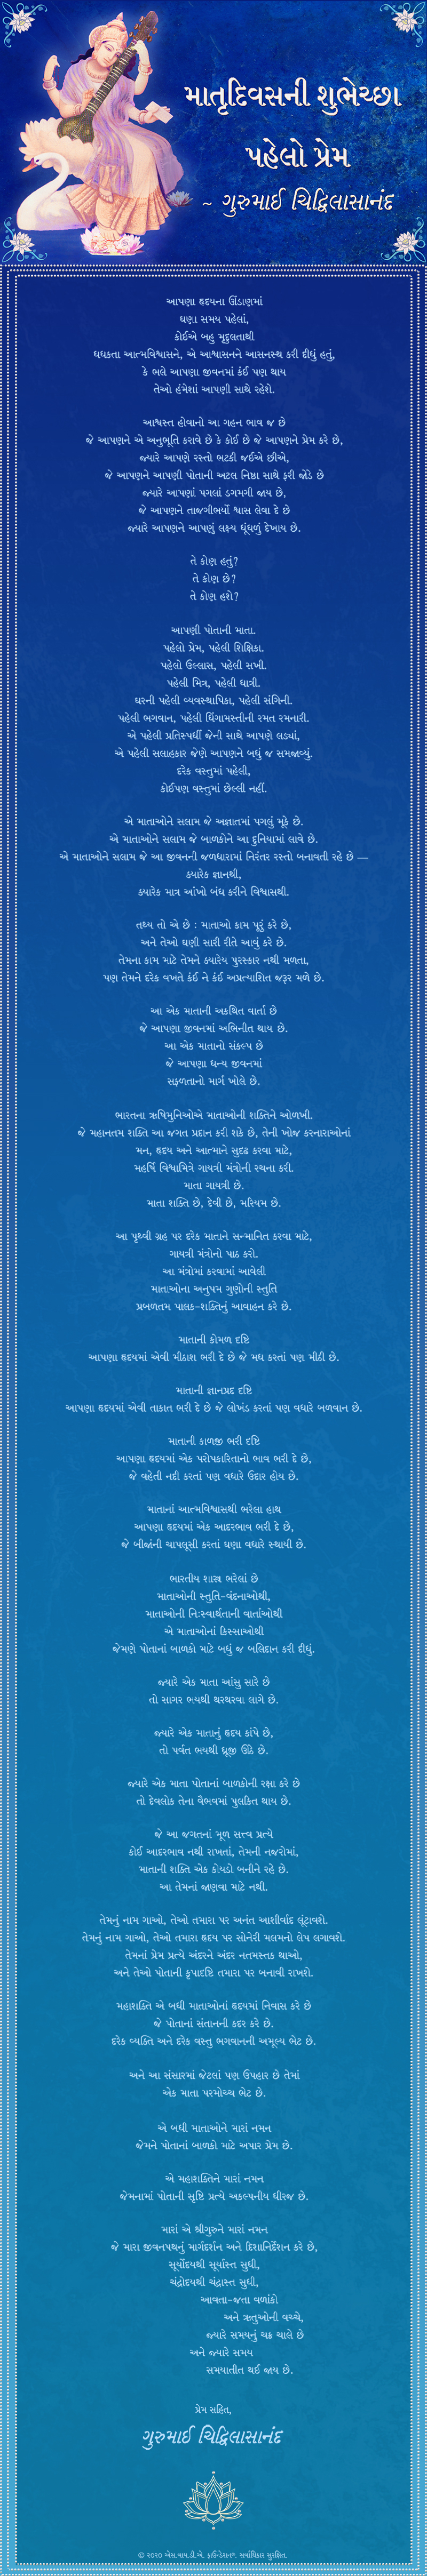 માતૃદિવસની શુભેચ્છા
પહેલો પ્રેમ
~ ગુરુમાઈ ચિદ્વિલાસાનંદ
આપણા હૃદયના ઊંડાણમાં
ઘણા સમય પહેલાં,
કોઈએ બહુ મૃદુલતાથી
ધધકતા આત્મવિશ્વાસને, એ આશ્વાસનને આસનસ્થ કરી દીધું હતું,
કે ભલે આપણા જીવનમાં કંઈ પણ થાય
તેઓ હંમેશાં આપણી સાથે રહેશે.
આશ્વસ્ત હોવાનો આ ગહન ભાવ જ છે
જે આપણને એ અનુભૂતિ કરાવે છે કે કોઈ છે જે આપણને પ્રેમ કરે છે,
જ્યારે આપણે રસ્તો ભટકી જઈએ છીએ,
જે આપણને આપણી પોતાની અટલ નિષ્ઠા સાથે ફરી જોડે છે
જ્યારે આપણાં પગલાં ડગમગી જાય છે,
જે આપણને તાજગીભર્યો શ્વાસ લેવા દે છે
જ્યારે આપણને આપણું લક્ષ્ય ધૂંધળું દેખાય છે.
તે કોણ હતું?
તે કોણ છે?
તે કોણ હશે?
આપણી પોતાની માતા.
પહેલો પ્રેમ, પહેલી શિક્ષિકા.
પહેલો ઉલ્લાસ, પહેલી સખી.
પહેલી મિત્ર, પહેલી ધાત્રી.
ઘરની પહેલી વ્યવસ્થાપિકા, પહેલી સંગિની.
પહેલી ભગવાન, પહેલી ધિંગામસ્તીની રમત રમનારી.
એ પહેલી પ્રતિસ્પર્ધી જેની સાથે આપણે લડ્યાં,
એ પહેલી સલાહકાર જેણે આપણને બધું જ સમજાવ્યું.
દરેક વસ્તુમાં પહેલી,
કોઈપણ વસ્તુમાં છેલ્લી નહીં.
એ માતાઓને સલામ જે અજ્ઞાતમાં પગલું મૂકે છે.
એ માતાઓને સલામ જે બાળકોને આ દુનિયામાં લાવે છે.
એ માતાઓને સલામ જે આ જીવનની જળધારામાં નિરંતર રસ્તો બનાવતી રહે છે —
ક્યારેક જ્ઞાનથી,
ક્યારેક માત્ર આંખો બંધ કરીને વિશ્વાસથી.
તથ્ય તો એ છે : માતાઓ કામ પૂરું કરે છે,
અને તેઓ ઘણી સારી રીતે આવું કરે છે.
તેમના કામ માટે તેમને ક્યારેય પુરસ્કાર નથી મળતા,
પણ તેમને દરેક વખતે કંઈ ને કંઈ અપ્રત્યાશિત જરૂર મળે છે.
આ એક માતાની અકથિત વાર્તા છે
જે આપણા જીવનમાં અભિનીત થાય છે.
આ એક માતાનો સંકલ્પ છે
જે આપણા ધન્ય જીવનમાં
સફળતાનો માર્ગ ખોલે છે.
ભારતના ઋષિમુનિઓએ માતાઓની શક્તિને ઓળખી.
જે મહાનતમ શક્તિ આ જગત પ્રદાન કરી શકે છે, તેની ખોજ કરનારાઓનાં
મન, હૃદય અને આત્માને સુદૃઢ કરવા માટે,
મહર્ષિ વિશ્વામિત્રે ગાયત્રી મંત્રોની રચના કરી.
માતા ગાયત્રી છે.
માતા શક્તિ છે, દેવી છે, મરિયમ છે.
આ પૃથ્વી ગ્રહ પર દરેક માતાને સન્માનિત કરવા માટે,
ગાયત્રી મંત્રોનો પાઠ કરો.
આ મંત્રોમાં કરવામાં આવેલી
માતાઓના અનુપમ ગુણોની સ્તુતિ
પ્રબળતમ પાલક-શક્તિનું આવાહન કરે છે.
માતાની કોમળ દૃષ્ટિ
આપણા હૃદયમાં એવી મીઠાશ ભરી દે છે જે મધ કરતાં પણ મીઠી છે.
માતાની જ્ઞાનપ્રદ દૃષ્ટિ
આપણા હૃદયમાં એવી તાકાત ભરી દે છે જે લોખંડ કરતાં પણ વધારે બળવાન છે.
માતાની કાળજી ભરી દૃષ્ટિ
આપણા હૃદયમાં એક પરોપકારિતાનો ભાવ ભરી દે છે,
જે વહેતી નદી કરતાં પણ વધારે ઉદાર હોય છે.
માતાનાં આત્મવિશ્વાસથી ભરેલા હાથ
આપણા હૃદયમાં એક આદરભાવ ભરી દે છે,
જે બીજાંની ચાપલૂસી કરતાં ઘણા વધારે સ્થાયી છે.
ભારતીય શાસ્ત્ર ભરેલાં છે
માતાઓની સ્તુતિ-વંદનાઓથી,
માતાઓની નિઃસ્વાર્થતાની વાર્તાઓથી
એ માતાઓનાં કિસ્સાઓથી
જેમણે પોતાનાં બાળકો માટે બધું જ બલિદાન કરી દીધું.
જ્યારે એક માતા આંસુ સારે છે
તો સાગર ભયથી થરથરવા લાગે છે.
જ્યારે એક માતાનું હૃદય કાંપે છે,
તો પર્વત ભયથી ધ્રૂજી ઊઠે છે.
જ્યારે એક માતા પોતાનાં બાળકોની રક્ષા કરે છે
તો દેવલોક તેના વૈભવમાં પુલકિત થાય છે.
જે આ જગતનાં મૂળ સત્ત્વ પ્રત્યે
કોઈ આદરભાવ નથી રાખતાં, તેમની નજરોમાં,
માતાની શક્તિ એક કોયડો બનીને રહે છે.
આ તેમનાં જાણવા માટે નથી.
તેમનું નામ ગાઓ, તેઓ તમારા પર અનંત આશીર્વાદ લૂંટાવશે.
તેમનું નામ ગાઓ, તેઓ તમારા હૃદય પર સોનેરી મલમનો લેપ લગાવશે.
તેમનાં પ્રેમ પ્રત્યે અંદરને અંદર નતમસ્તક થાઓ,
અને તેઓ પોતાની કૃપાદૃષ્ટિ તમારા પર બનાવી રાખશે.
મહાશક્તિ એ બધી માતાઓનાં હૃદયમાં નિવાસ કરે છે
જે પોતાનાં સંતાનની કદર કરે છે.
દરેક વ્યક્તિ અને દરેક વસ્તુ ભગવાનની અમૂલ્ય ભેટ છે.
અને આ સંસારમાં જેટલાં પણ ઉપહાર છે તેમાં
એક માતા પરમોચ્ચ ભેટ છે.
એ બધી માતાઓને મારાં નમન
જેમને પોતાનાં બાળકો માટે અપાર પ્રેમ છે.
એ મહાશક્તિને મારાં નમન
જેમનામાં પોતાની સૃષ્ટિ પ્રત્યે અકલ્પનીય ધીરજ છે.
મારાં એ શ્રીગુરુને મારાં નમન
જે મારા જીવનપથનું માર્ગદર્શન અને દિશાનિર્દેશન કરે છે,
સૂર્યોદયથી સૂર્યાસ્ત સુધી,
ચંદ્રોદયથી ચંદ્રાસ્ત સુધી,
આવતા-જતા વળાંકો
અને ઋતુઓની વચ્ચે,
જ્યારે સમયનું ચક્ર ચાલે છે
અને જ્યારે સમય
સમયાતીત થઈ જાય છે.
પ્રેમ સહિત,
ગુરુમાઈ ચિદ્વિલાસાનંદ
© ૨૦૨૦ એસ.વાય.ડી.એ. ફાઉન્ડેશન®. સર્વાધિકાર સુરક્ષિત.